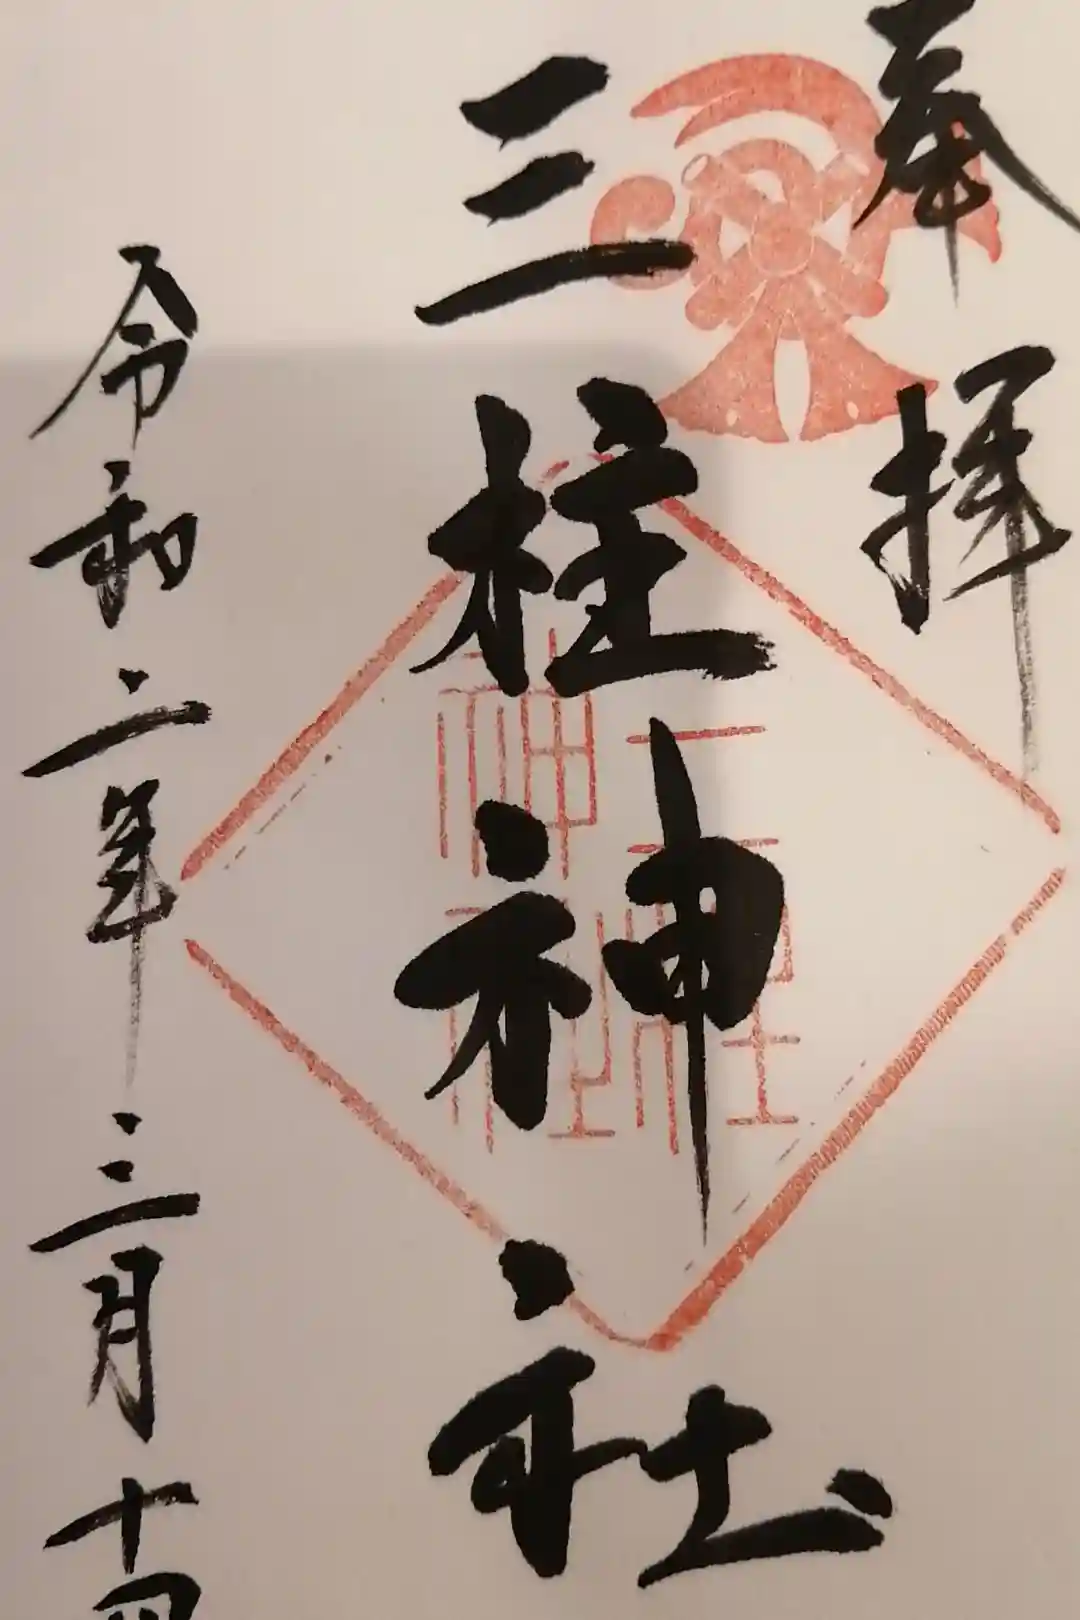 奉拝
三柱神社
三柱
神社
令和二年三月十四